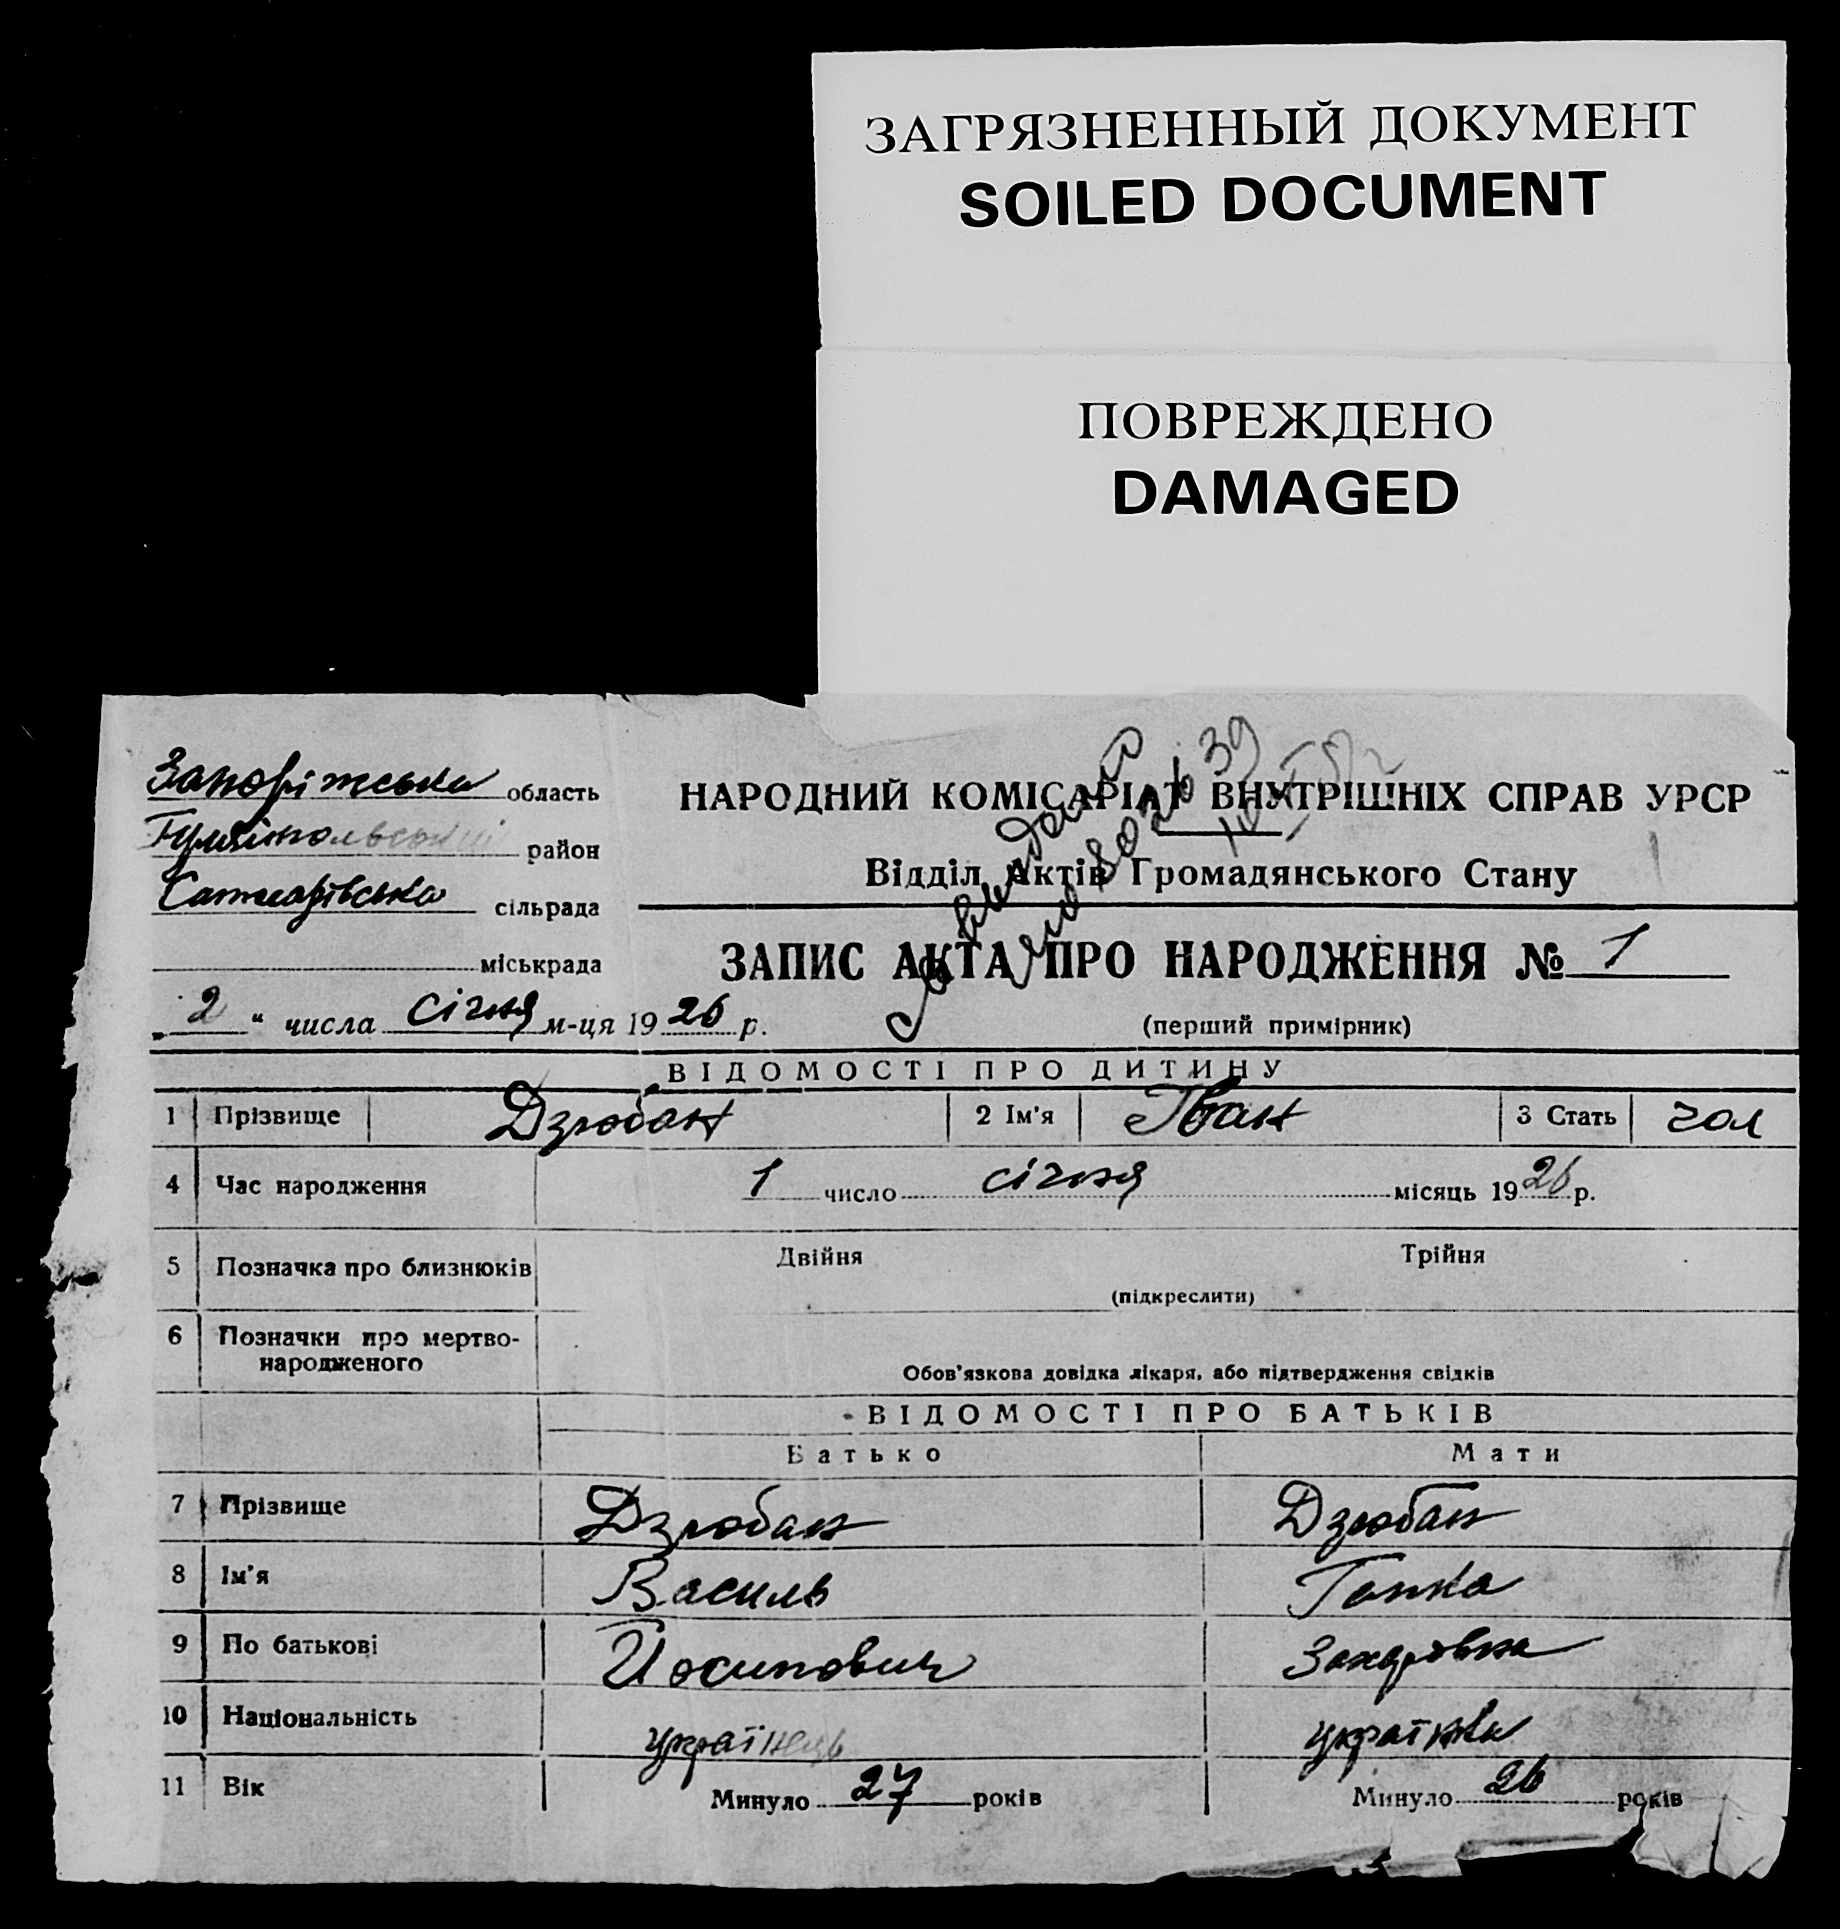 ЗАГРЯЗНЕННЫЙ ДОКУМЕНТ
SOILED DOCUMENT
ПОВРЕЖДЕНО
DAMAGED
Запоріжська область
Гуляйпольський район
сільрада
міськрада
„ 2 “ числа січня м-ця 1926 р.
НАРОДНИЙ КОМІСАРІАТ ВНУТРІШНІХ СПРАВ УРСР
Відділ Актів Громадянського Стану
ЗАПИС АКТА ПРО НАРОДЖЕННЯ № 1
(перший примірник)
ВІДОМОСТІ ПРО ДИТИНУ
1 Прізвище Дзюбан 2 Ім'я Іван 3 Стать чол
4 Час народження 1 число січня місяць 1926 р.
5 Позначка про близнюків Двійня Трійня
(підкреслити)
6 Позначки про мертво-
народженого
Обов'язкова довідка лікаря, або підтвердження свідків
ВІДОМОСТІ ПРО БАТЬКІВ
Батько Мати
7 Прізвище Дзюбан Дзюбан
8 Ім'я Василь Гапка
9 По батькові Йосипович Захаровна
10 Національність українець українка
11 Вік Минуло 27 років Минуло 26 років